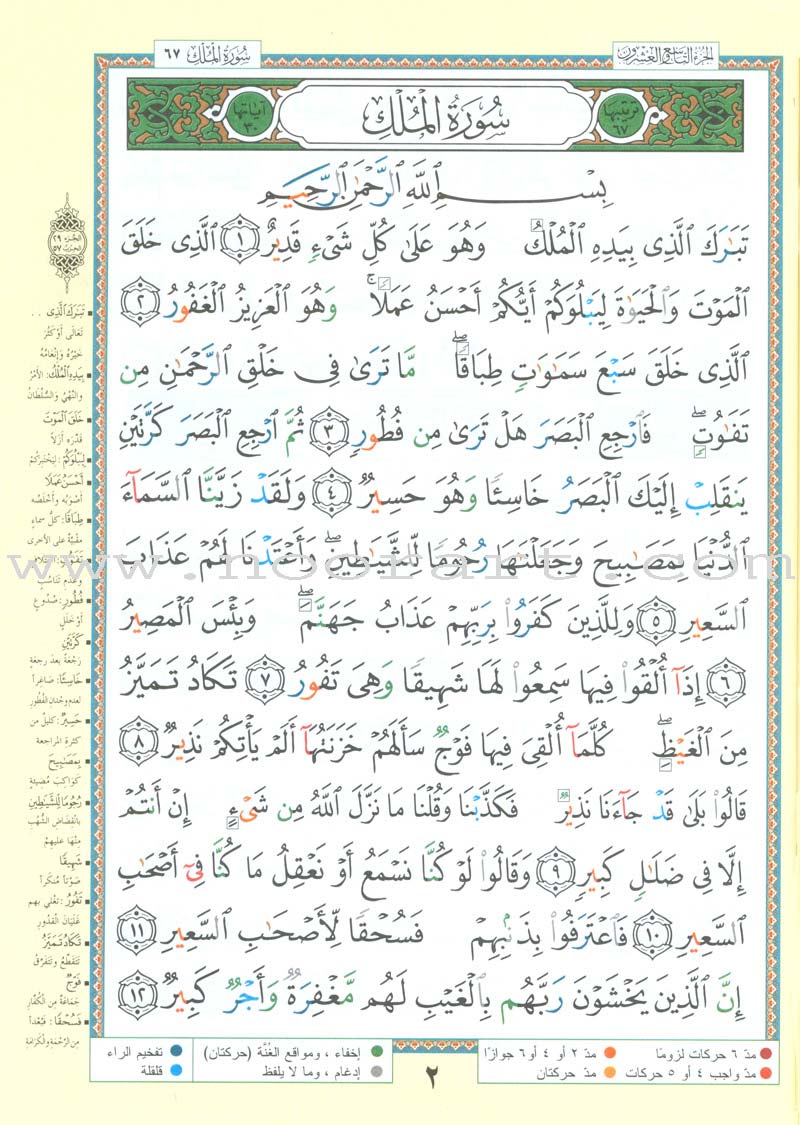 الجزء التاسع والعشرون
سُورَةُ المُلْكِ ٦٧
ترتيبها ٦٧
سُورَةُ المُلْكِ
آياتها ٣٠
بِسْمِ ٱللَّهِ ٱلرَّحْمَٰنِ ٱلرَّحِيمِ
تَبَٰرَكَ ٱلَّذِى بِيَدِهِ ٱلْمُلْكُ وَهُوَ عَلَىٰ كُلِّ شَىْءٍ قَدِيرٌ ١ ٱلَّذِى خَلَقَ
ٱلْمَوْتَ وَٱلْحَيَوٰةَ لِيَبْلُوَكُمْ أَيُّكُمْ أَحْسَنُ عَمَلًا ۚ وَهُوَ ٱلْعَزِيزُ ٱلْغَفُورُ ٢
ٱلَّذِى خَلَقَ سَبْعَ سَمَٰوَٰتٍ طِبَاقًا ۖ مَّا تَرَىٰ فِى خَلْقِ ٱلرَّحْمَٰنِ مِن
تَفَٰوُتٍ ۖ فَٱرْجِعِ ٱلْبَصَرَ هَلْ تَرَىٰ مِن فُطُورٍ ٣ ثُمَّ ٱرْجِعِ ٱلْبَصَرَ كَرَّتَيْنِ
يَنقَلِبْ إِلَيْكَ ٱلْبَصَرُ خَاسِئًا وَهُوَ حَسِيرٌ ٤ وَلَقَدْ زَيَّنَّا ٱلسَّمَآءَ
ٱلدُّنْيَا بِمَصَٰبِيحَ وَجَعَلْنَٰهَا رُجُومًا لِّلشَّيَٰطِينِ ۖ وَأَعْتَدْنَا لَهُمْ عَذَابَ
ٱلسَّعِيرِ ٥ وَلِلَّذِينَ كَفَرُوا۟ بِرَبِّهِمْ عَذَابُ جَهَنَّمَ ۖ وَبِئْسَ ٱلْمَصِيرُ
٦ إِذَآ أُلْقُوا۟ فِيهَا سَمِعُوا۟ لَهَا شَهِيقًا وَهِىَ تَفُورُ ٧ تَكَادُ تَمَيَّزُ
مِنَ ٱلْغَيْظِ ۖ كُلَّمَآ أُلْقِىَ فِيهَا فَوْجٌ سَأَلَهُمْ خَزَنَتُهَآ أَلَمْ يَأْتِكُمْ نَذِيرٌ ٨
قَالُوا۟ بَلَىٰ قَدْ جَآءَنَا نَذِيرٌ فَكَذَّبْنَا وَقُلْنَا مَا نَزَّلَ ٱللَّهُ مِن شَىْءٍ إِنْ أَنتُمْ
إِلَّا فِى ضَلَٰلٍ كَبِيرٍ ٩ وَقَالُوا۟ لَوْ كُنَّا نَسْمَعُ أَوْ نَعْقِلُ مَا كُنَّا فِىٓ أَصْحَٰبِ
ٱلسَّعِيرِ ١٠ فَٱعْتَرَفُوا۟ بِذَنۢبِهِمْ فَسُحْقًا لِّأَصْحَٰبِ ٱلسَّعِيرِ ١١
إِنَّ ٱلَّذِينَ يَخْشَوْنَ رَبَّهُم بِٱلْغَيْبِ لَهُم مَّغْفِرَةٌ وَأَجْرٌ كَبِيرٌ ١٢
الجزء ٢٩
الحزب ٥٧
تَبَٰرَكَ ٱلَّذِى ..
تعالى أو كثر
خيره وإنعامه
بِيَدِهِ ٱلْمُلْكُ: الأمر
والنهي والسلطان
خَلَقَ ٱلْمَوْتَ
قدّره أزلاً
لِيَبْلُوَكُمْ: ليختبركم
أَحْسَنُ عَمَلًا
أصوبه وأخلصه
طِبَاقًا: كل سماء
مقبّبة على الأخرى
تَفَٰوُتٍ: اختلاف
وعدم تناسب
فُطُورٍ: صدوع
أو خلل
كَرَّتَيْنِ
رجعة بعد رجعة
خَاسِئًا: صاغراً
لعدم وجدان الفطور
حَسِيرٌ: كليل من
كثرة المراجعة
بِمَصَٰبِيحَ
كواكب مضيئة
رُجُومًا لِّلشَّيَٰطِينِ
بانقضاض الشهب
منها عليهم
شَهِيقًا
صوتاً منكراً
تَفُورُ: تغلي بهم
غليان القدور
تَكَادُ تَمَيَّزُ
تتقطع وتتفرق
فَوْجٌ
جماعة من الكفار
فَسُحْقًا: فبعداً
من الرحمة والكرامة
مدّ ٦ حركات لزوماً
مدّ ٢ أو ٤ أو ٦ جوازاً
مدّ واجب ٤ أو ٥ حركات
مدّ حركتان
إخفاء ، ومواقع الغُنَّة (حركتان)
إدغام ، وما لا يلفظ
تفخيم الراء
قلقلة
٢
www.noorart.com